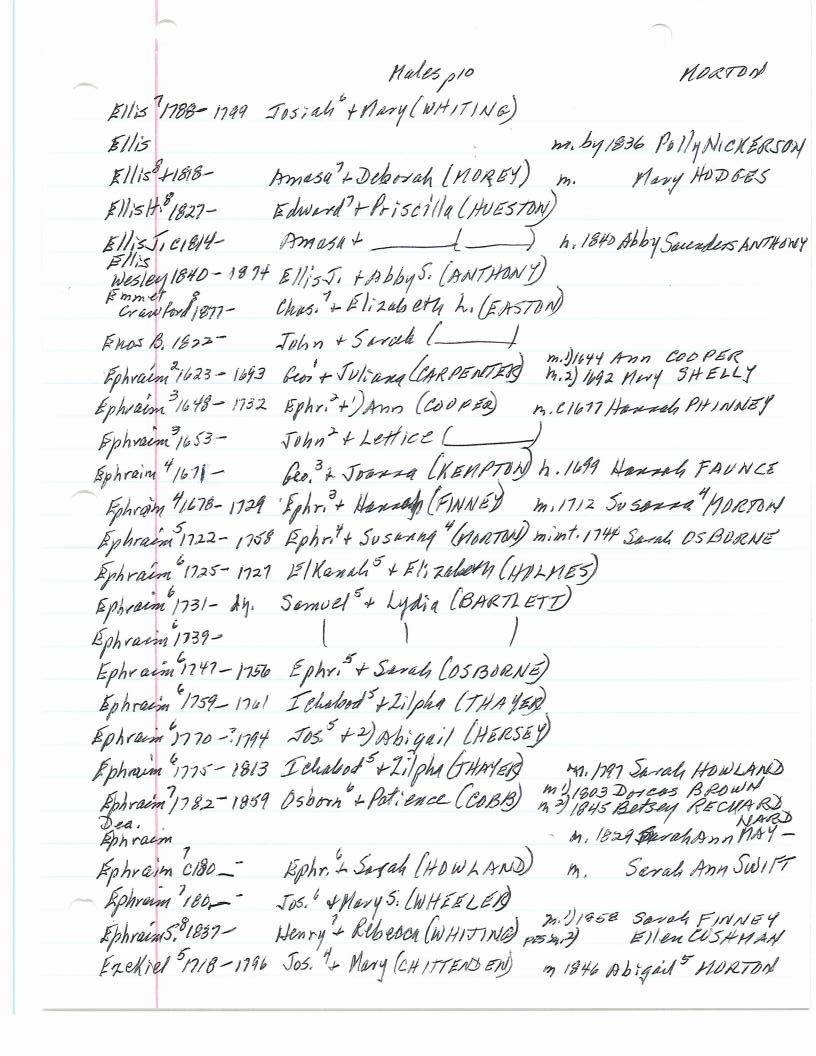 Males p10 MORTON
Ellis⁷ 1788-1799 Josiah⁶ + Mary (WHITING)
Ellis m. by 1836 Polly NICKERSON
Ellis⁸ +1818- Amasa⁷ + Deborah (MOREY) m. Mary HODGES
Ellis H.⁸ 1827- Edward⁷ + Priscilla (HUESTON)
Ellis J. c1814- Amasa + ______ (______) h. 1840 Abby Saunders ANTHONY
Ellis
Wesley 1840-1874 Ellis J. + Abby S. (ANTHONY)
Emmet
Crawford⁸ 1877- Chas.⁷ + Elizabeth h. (EASTON)
Enos B. 1822- John + Sarah (______)
m. 1) 1644 Ann COOPER
Ephraim² 1623-1693 Geo¹ + Juliana (CARPENTER) m. 2) 1692 Mary SHELLY
Ephraim³ 1648-1732 Ephr.² + 1) Ann (COOPER) m. c1677 Hannah PHINNEY
Ephraim³ 1653- John² + Lettice (______)
Ephraim⁴ 1671- Geo.³ + Joanna (KEMPTON) h. 1699 Hannah FAUNCE
Ephraim⁴ 1678-1729 Ephr.³ + Hannah (FINNEY) m. 1712 Susanna⁴ MORTON
Ephraim⁵ 1722-1758 Ephr.⁴ + Susanna⁴ (MORTON) m int. 1744 Sarah OSBORNE
Ephraim⁶ 1725-1727 Elkanah⁵ + Elizabeth (HOLMES)
Ephraim⁶ 1731- dy. Samuel⁵ + Lydia (BARTLETT)
Ephraim⁶ 1739- | | |
Ephraim⁶ 1747-1756 Ephr.⁵ + Sarah (OSBORNE)
Ephraim⁶ 1759-1761 Ichabod⁵ + Zilpha (THAYER)
Ephraim⁶ 1770-?1794 Jos.⁵ + 2) Abigail (HERSEY)
Ephraim⁶ 1775-1813 Ichabod⁵ + Zilpha (THAYER) m. 1797 Sarah HOWLAND
m 1) 1803 Dorcas BROWN
Ephraim⁷ 1782-1859 Osborn⁶ + Patience (COBB) m 2) 1845 Betsey RECHARD
Dea. NARD
Ephraim m. 1829 Sarah Ann MAY-
Ephraim⁷ c180_- Ephr.⁶ + Sarah (HOWLAND) m. Sarah Ann SWIFT
Ephraim⁷ 180_- Jos.⁶ + Mary S. (WHEELER)
m. 1) 1858 Sarah FINNEY
Ephraim S.⁸ 1837- Henry⁷ + Rebecca (WHITING) pos. m. 2) Ellen CUSHMAN
Ezekiel⁵ 1718-1796 Jos.⁴ + Mary (CHITTENDEN) m 1846 Abigail⁵ MORTON